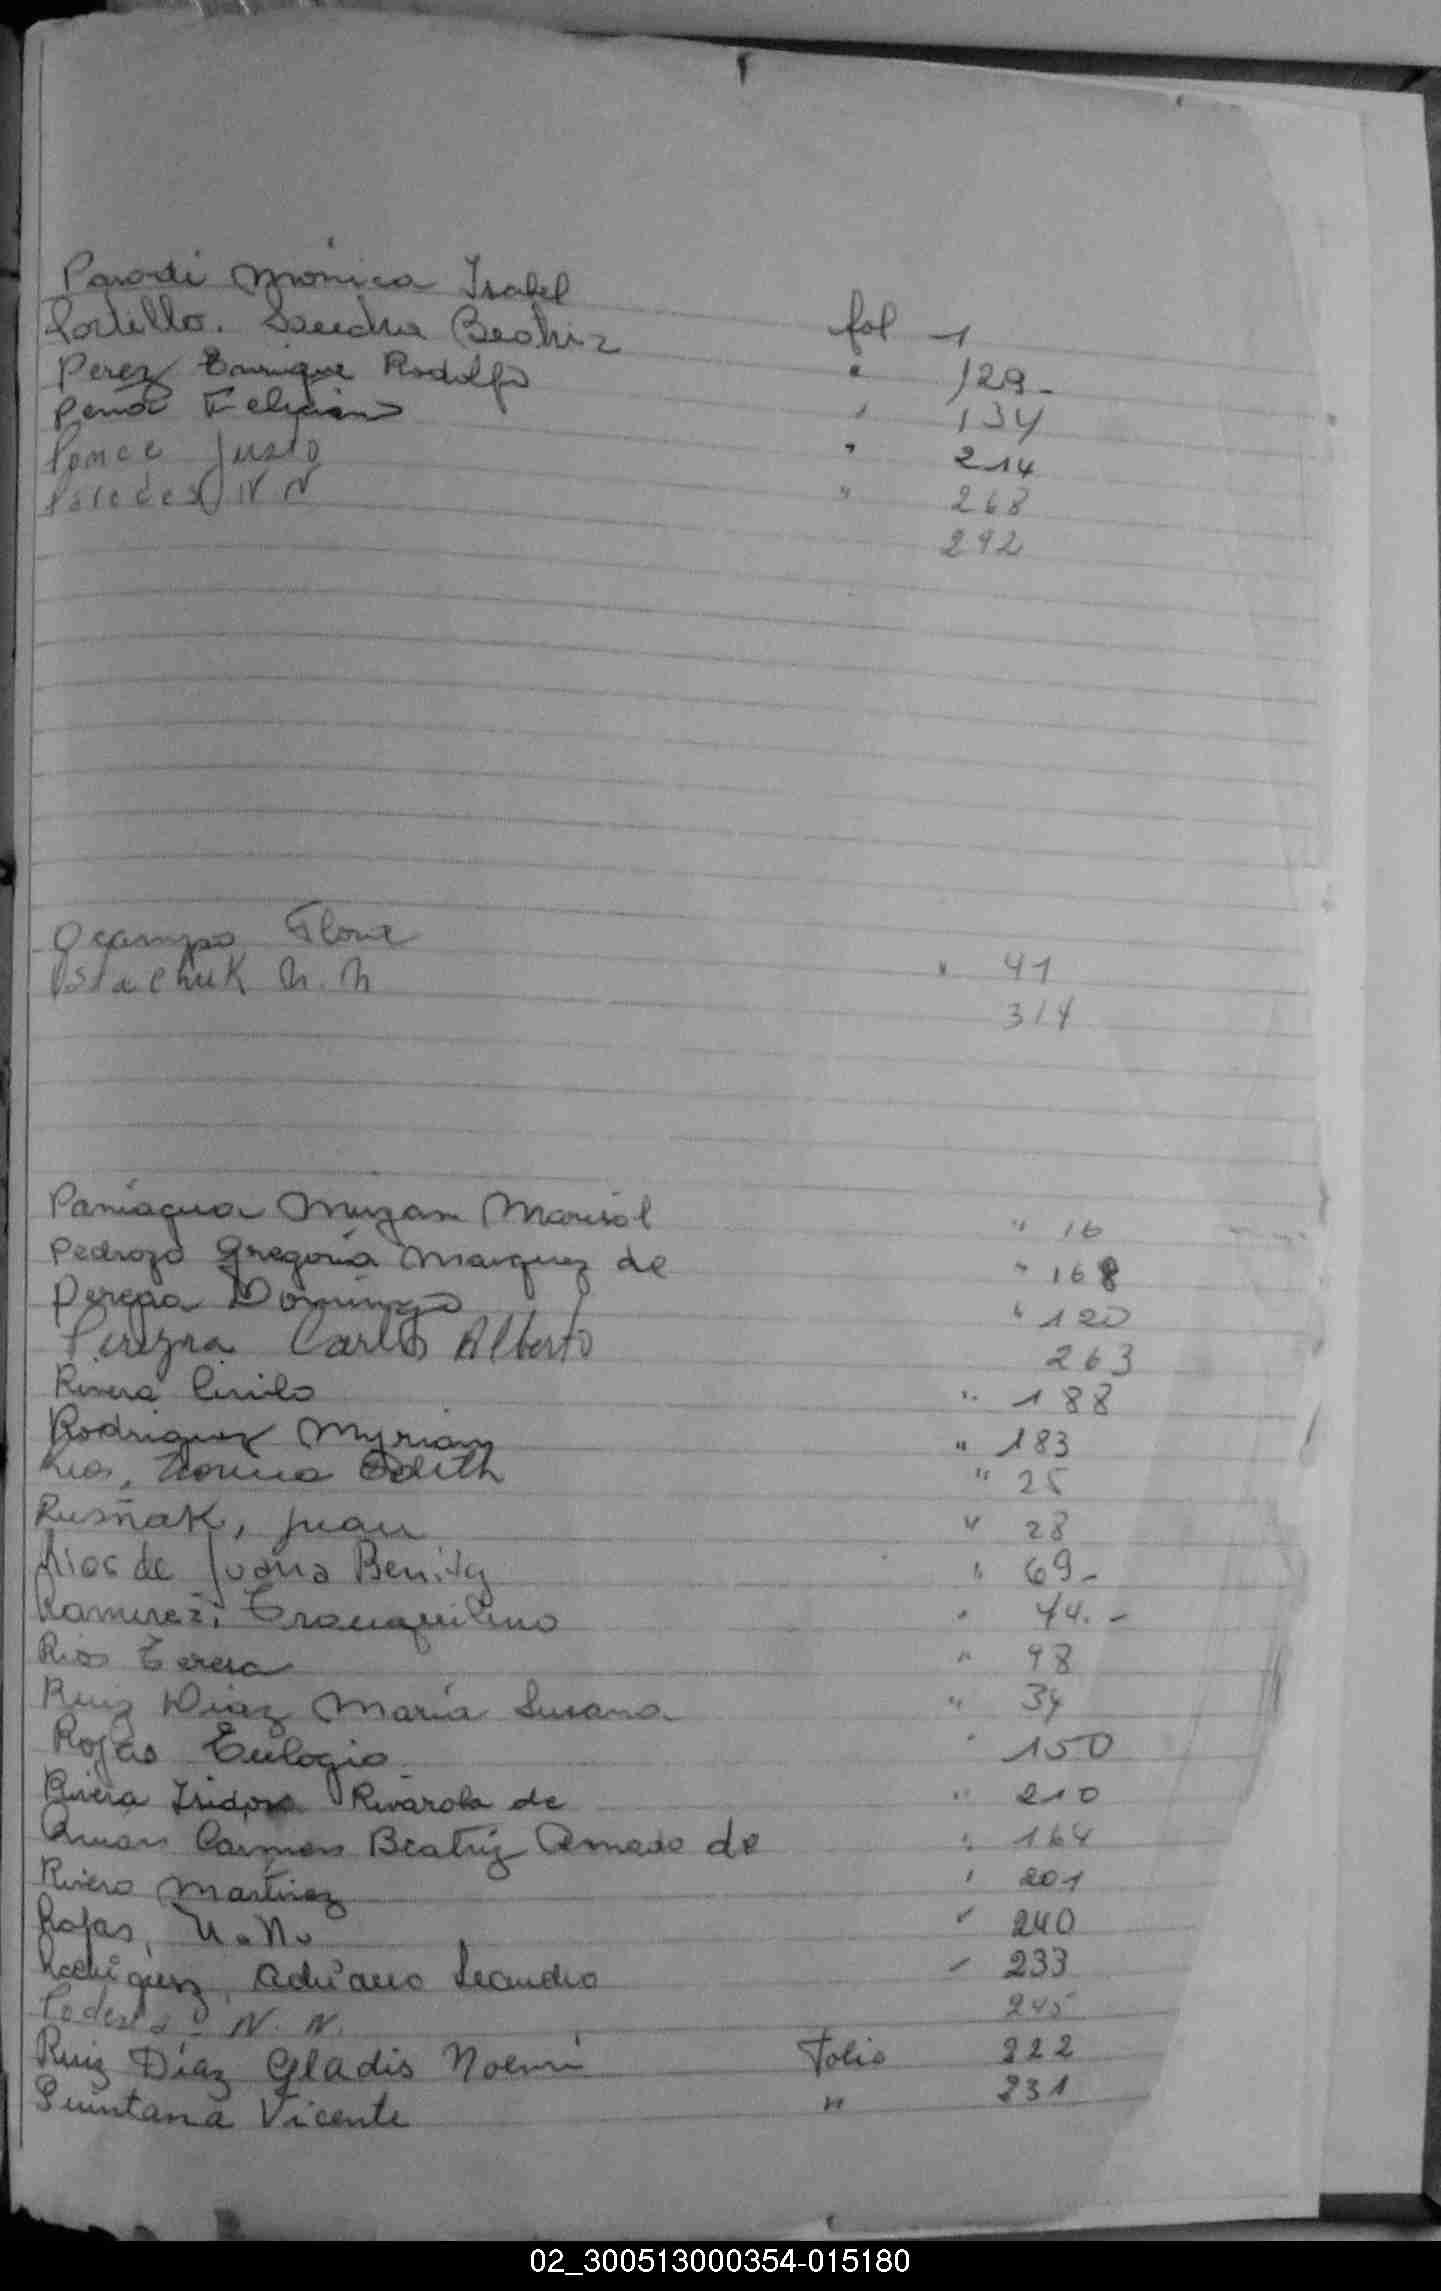 Parodi Mónica Isabel fol 1
Portillo. Sandra Beatriz " 129-
Perez Enrique Rodolfo " 134
Pensa Feliciano " 214
Ponce Justo " 268
Paredes N N 292
Ocampo Flore " 41
Ostachuk N. N 314
Paniagua Miryam Marisol " 16
Pedrozo Gregoria Marquez de " 168
Pereyra Domingo " 120
Pereyra Carlos Alberto 263
Rivera Cirilo " 188
Rodriguez Myrian " 183
Rios, Norma Edith " 25
Rusñak, Juan " 28
Rios de Juana Benita " 69-
Ramirez, Tranquilino " 44.-
Rios Teresa " 98
Ruiz Diaz María Susana " 34
Rojas Eulogio " 150
Rivera Isidora Rivarola de " 210
Carmen Beatriz Amado de " 164
Rivero Martinez " 201
Rojas, N.N. " 240
Rodriguez, Adriano Leandro " 233
N. N. 245
Ruiz Díaz Gladis Noemí Folio 222
Quintana Vicente " 231
02_300513000354-015180